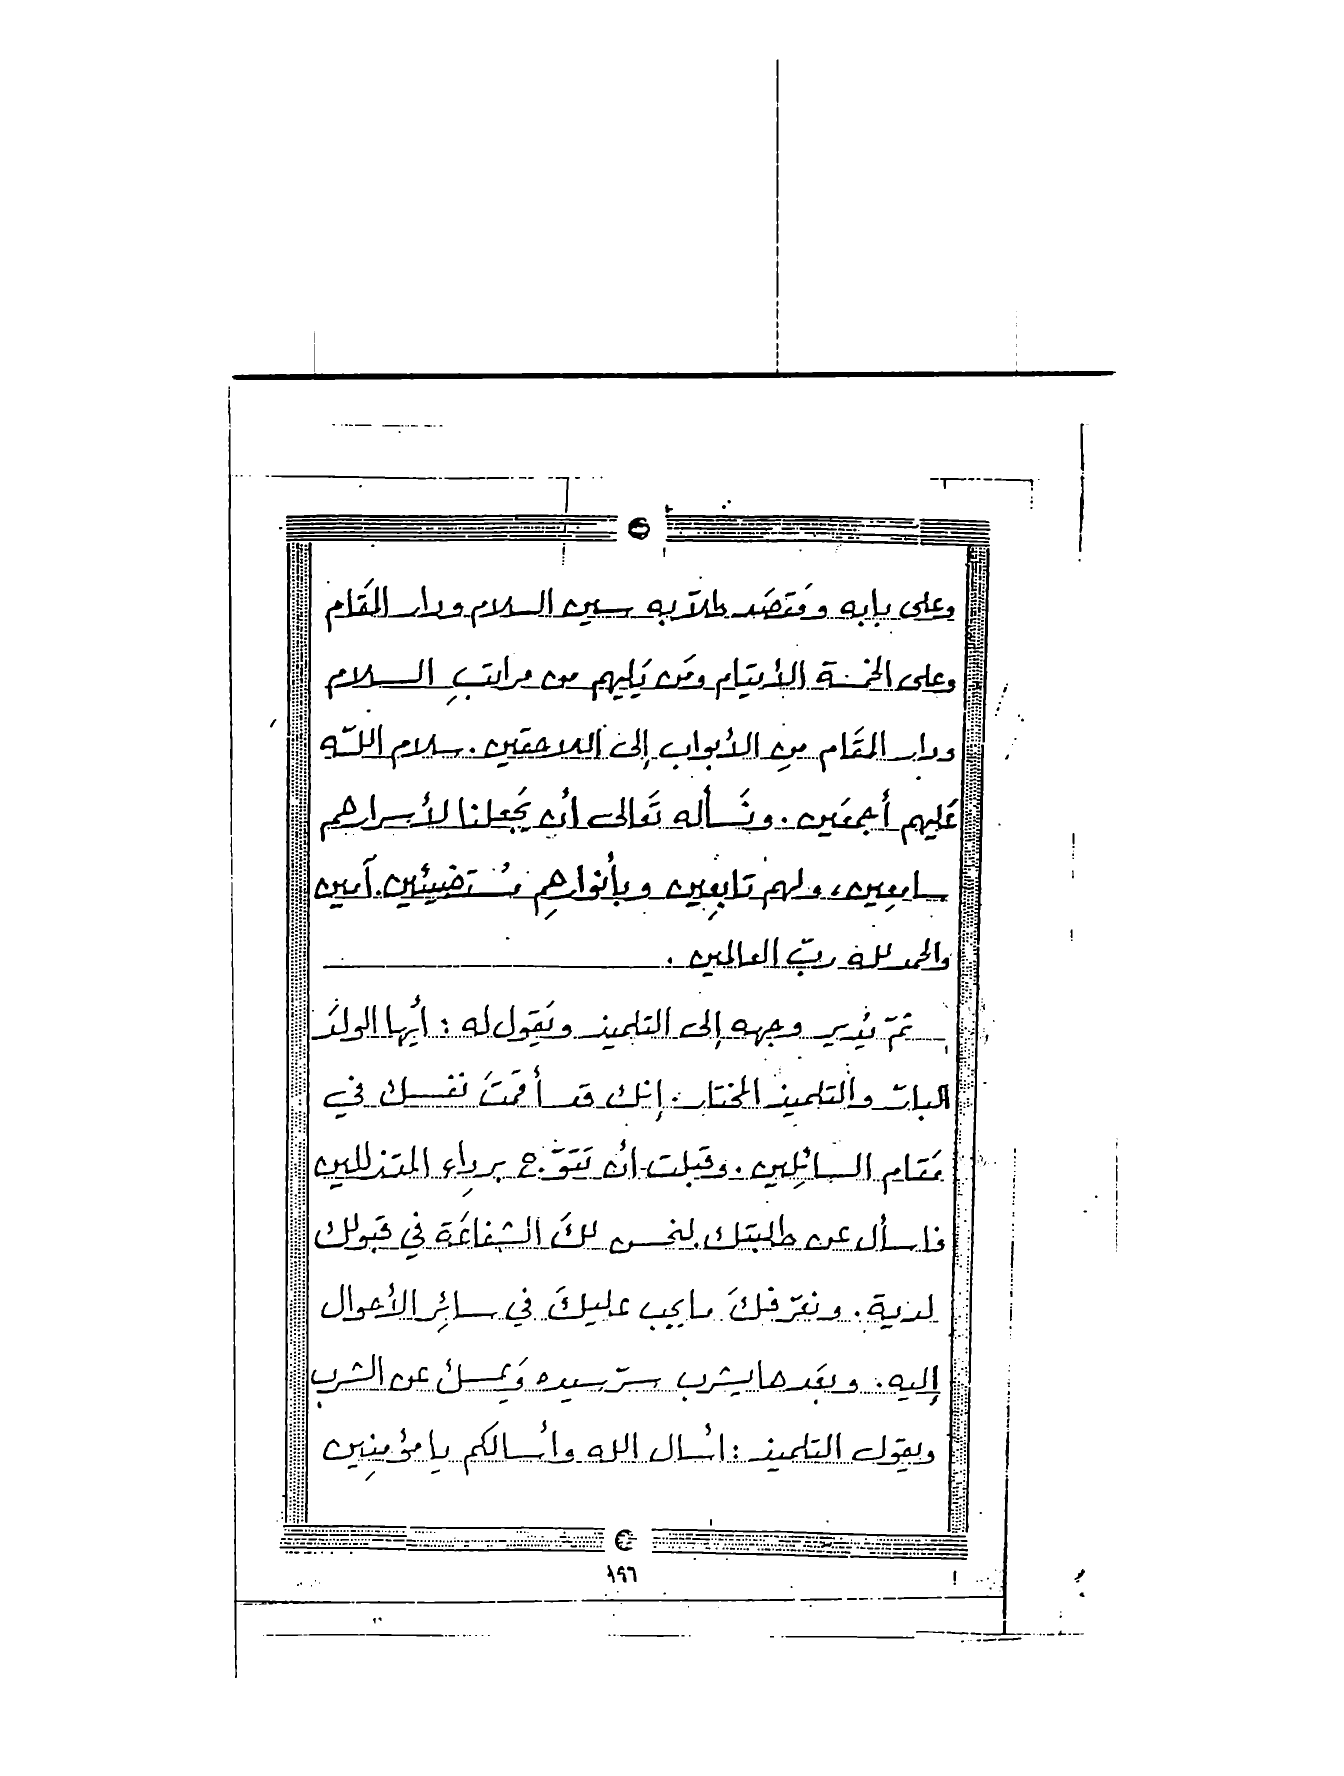 وعلى بابه ومَقصَد طلّابه سين السلام ودار المقَام
وعلى الخمسة الأيتام ومَن يَليهم من مراتبِ السلام
ودار المقَام منِ الأبواب إلى اللاحقين. سلام اللّه
عَليهم أجمعَين. ونَسأله تَعالى أن يجَعلنا لأسرارهم
سامعِين، ولهم تابعِين وبأنوارهِم مُستضيئين. آمين
والحمد لله ربّ العالمين.
ثمّ يُدير وجهه إلى التلميذ ويَقول له : أيُها الولدَ
البارّ والتلميذ المختار. إنك قد أقمَتَ نفسك في
مَقام السائِلين. وقَبلت أن تَتَوّج برِداء المتذللين
فاسأل عن طلبتك لنحسن لكَ الشفاعَة في قَبولك
لديه. ونعَرّفكَ ما يجب عليكَ في سائِر الأحوال
إليه. وبعَدها يشرب سرّ سيده وَيمسك عن الشرب
ويقول التلميذ : اسُأل الله واسُألكم يا مؤمنِين
١٩٦